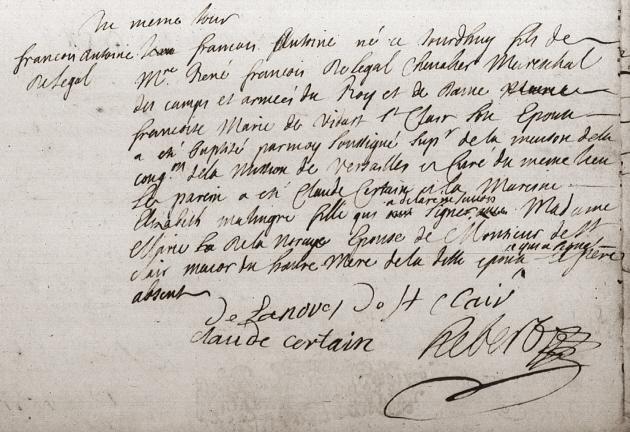 Du meme Jour
francois Antoine
De Legal
francois Antoine né ce Jourdhuy fils de
Mre René francois De Legal Chevalier Marechal
des camps et armées du Roy et de Dame
francoise Marie de St Clair son Epouse
a eté Baptisé par moy soussigné Supr de la maison de la
congon de la Mission de Versailles et Curé du meme lieu
Le parein a eté Claude Certain et la Mareine
Elisabeth malingre fille qui a déclaré ne savoir signer Madame
De la Epouse de Monsieur de St
Clair major du havre Mere de la dite epouse a qui a signé le père
absent
De Lanoue De St Clair
claude certain
hebert